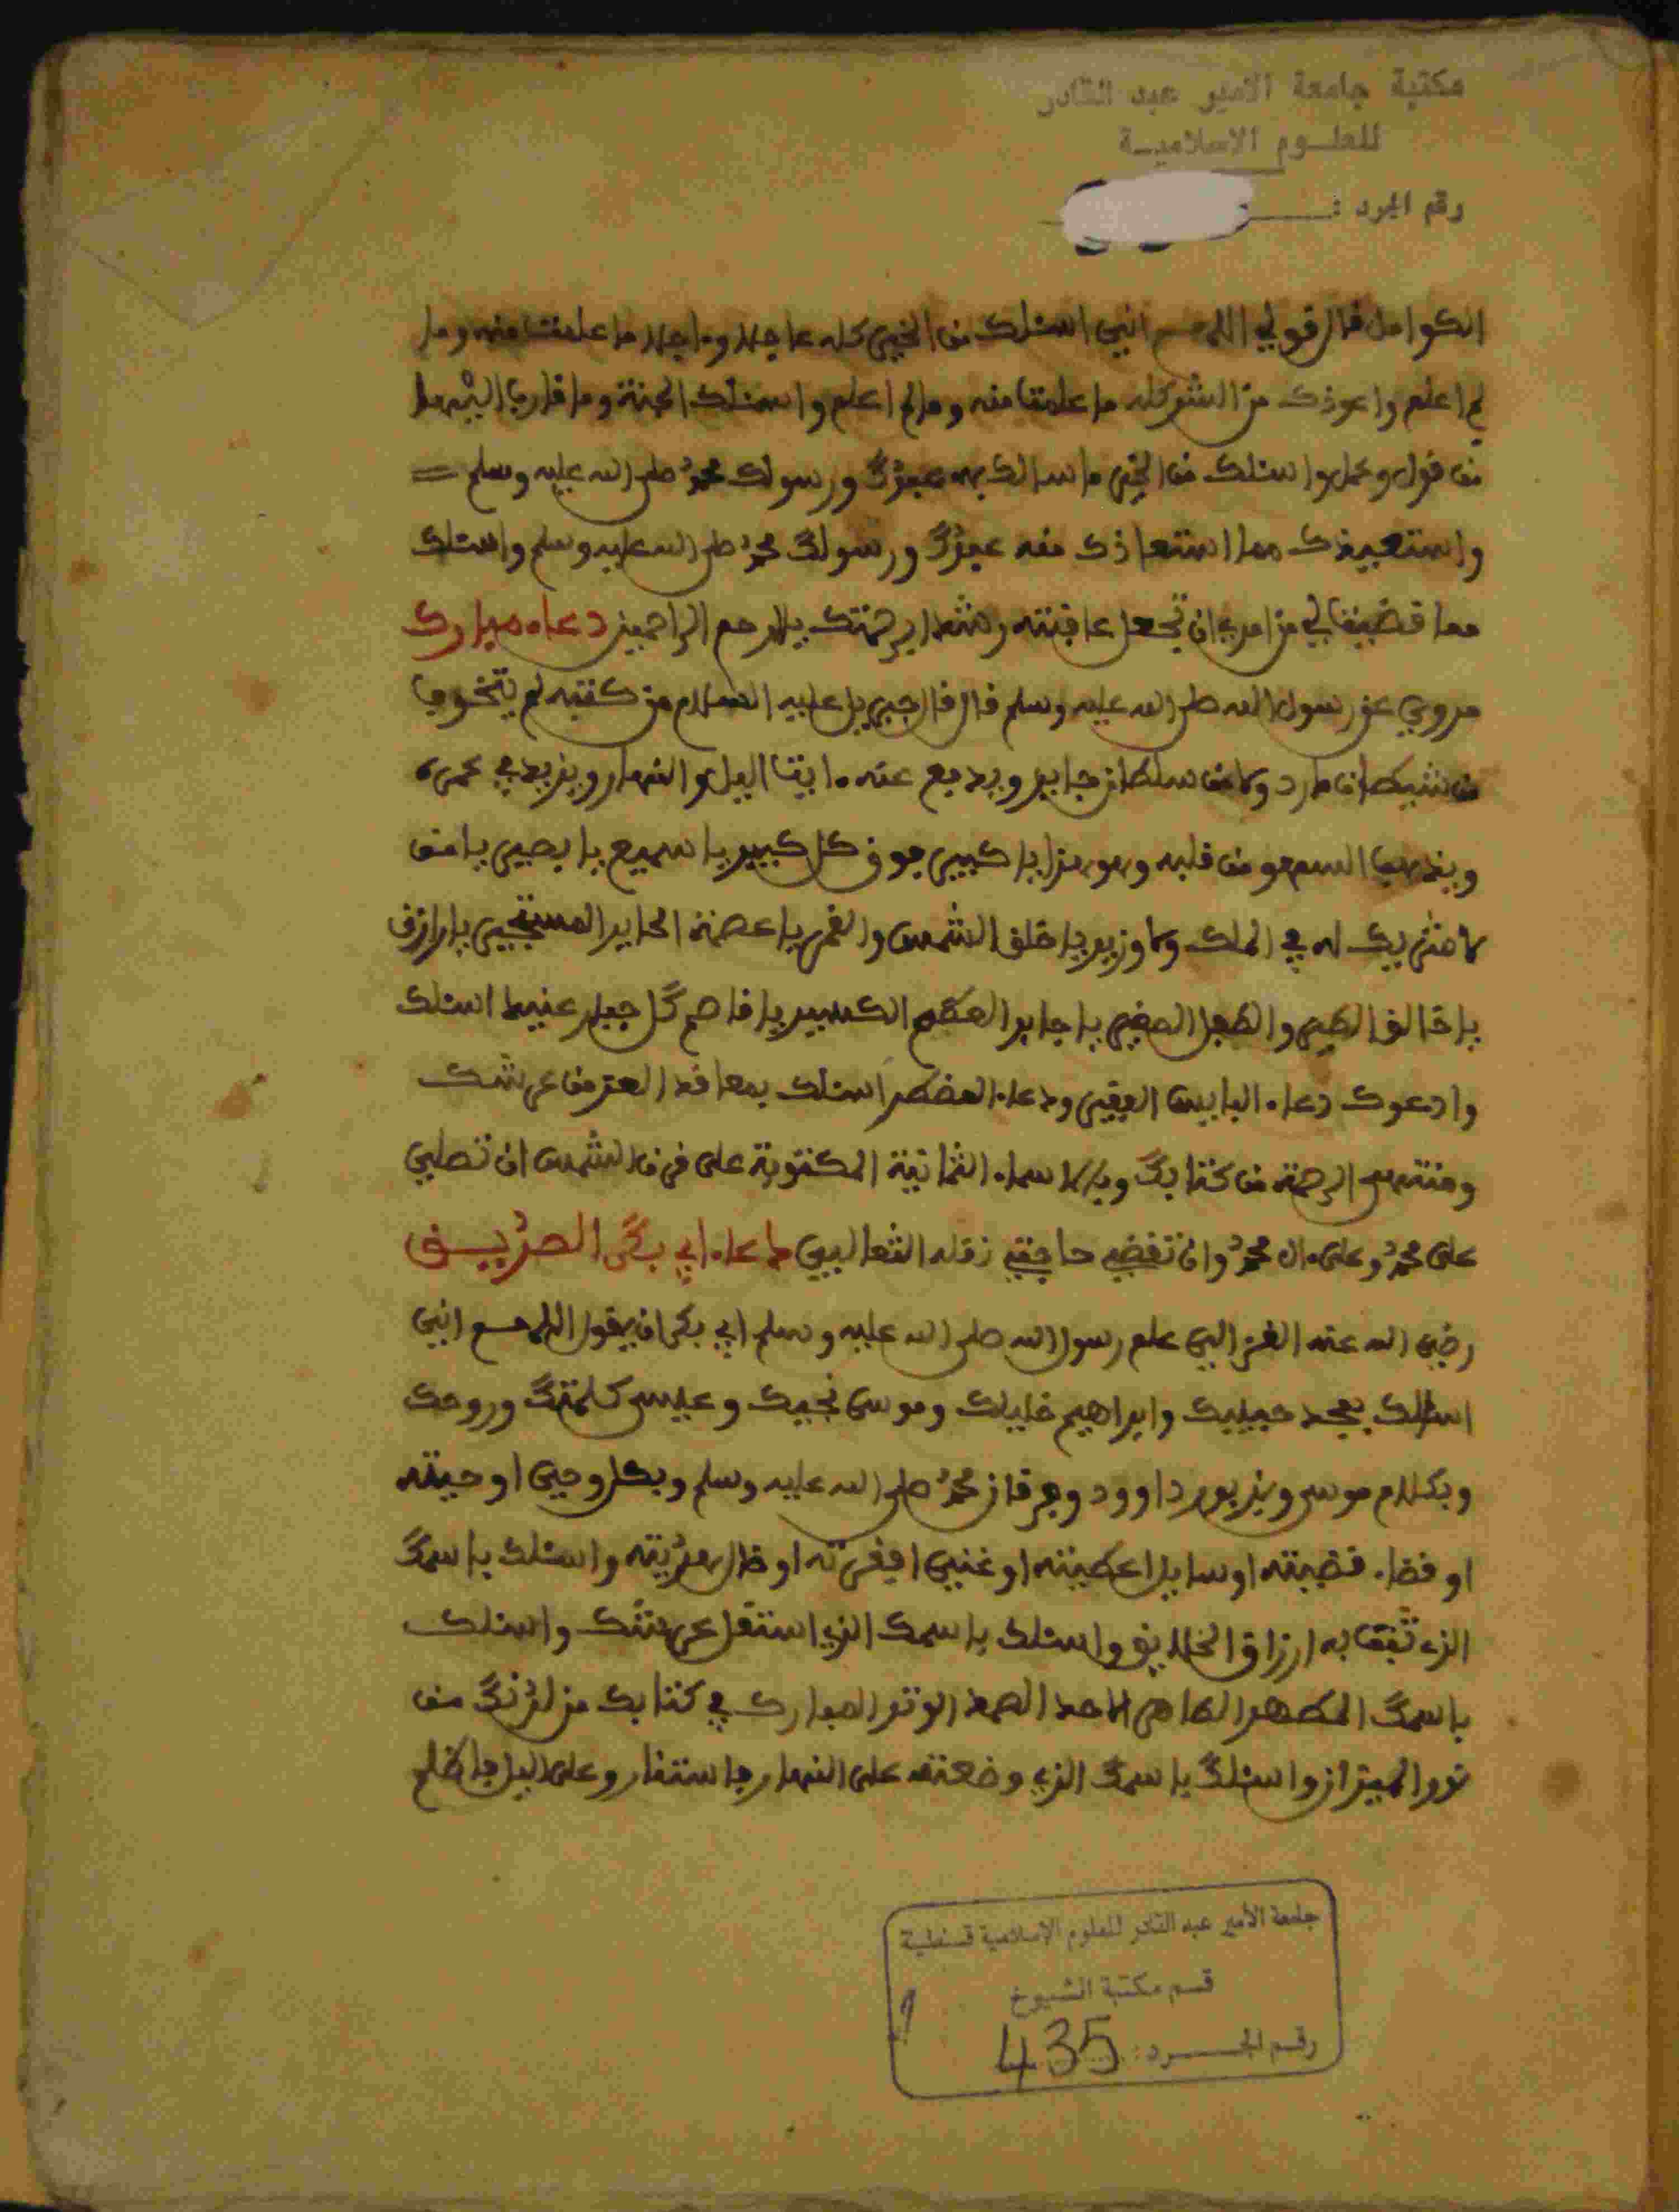 مكتبة جامعة الامير عبد القادر
للعلــوم الاسلاميــة
رقم الجرد :
الكوامل قال قولي اللهم انيي اسئلك من الخير كله عاجله وءاجله ما علمت منه وما
لم اعلم واعوذك من الشر كله ما علمت منه وما لم اعلم واسئلك الجنة وما قارب اليها
من قول وعمل واسئلك من الخير ما سالك به عبدك ورسولك محمد صلى الله عليه وسلم =
واستعيذك مما استعاذك منه عبدك ورسولك محمد صلى الله عليه وسلم واسئلك
مما قضيت لي من امري ان تجعل عاقبته رشدا برحمتك يا ارحم الراحمين دعاء مبارك
مروي عن رسول الله صلى الله عليه وسلم قال قال جبريل عليه السلام من كتبه لم يتخوف
من شيطان مارد ولا من سلطان جاير ويدفع عنه ءافات اليل والنهار ويزيد في عمره
ويذهب السم من قلبه وهو هذا يا كبير فوق كل كبير يا سميع يا بصير يا من
لا شريك له في الملك ولا وزير يا خلق الشمس والقمر يا عصمة الخايف المستجير يا رازق
يا خالق الطير والطفل الصغير يا جابر العظم الكسير يا قاصم كل جبار عنيد اسئلك
وادعوك دعاء البايس الفقير ودعاء المضطر اسئلك بمعاقد العز من عرشك
ومنتهى الرحمة من كتابك وبالاسماء الثمانية المكتوبة على قرن الشمس ان تصلي
على محمد وعلى ءال محمد وان تقضي حاجتي نقله الثعالبي دعاء ابي بكر الصديــق
رضي الله عنه الغزالي علم رسول الله صلى الله عليه وسلم ابي بكر ان يقول اللهم انيي
اسالك بمحمد حبيبك وابراهيم خليلك وموسى نجيك وعيسى كلمتك وروحك
وبكلام موسى وبزبور داوود وفرقان محمد صلى الله عليه وسلم وبكل وحي اوحيته
او قضاء قضيته او سايل اعطيته او غني افقرته او ضال هديته واسئلك باسمك
الذي ثبت به ارزاق الخلايق واسئلك باسمك الذي استقل عرشك واسئلك
باسمك المطهر الطاهر الاحد الصمد الوتر المبارك في كتابك من لدنك من
نور الميزان واسئلك باسمك الذي وضعته على النهار فاستنار وعلى اليل فاظلم
جامعة الأمير عبد القادر للعلوم الإسلامية قسنطينة
قسم مكتبة الشيوخ
رقم الجــــرد : 435